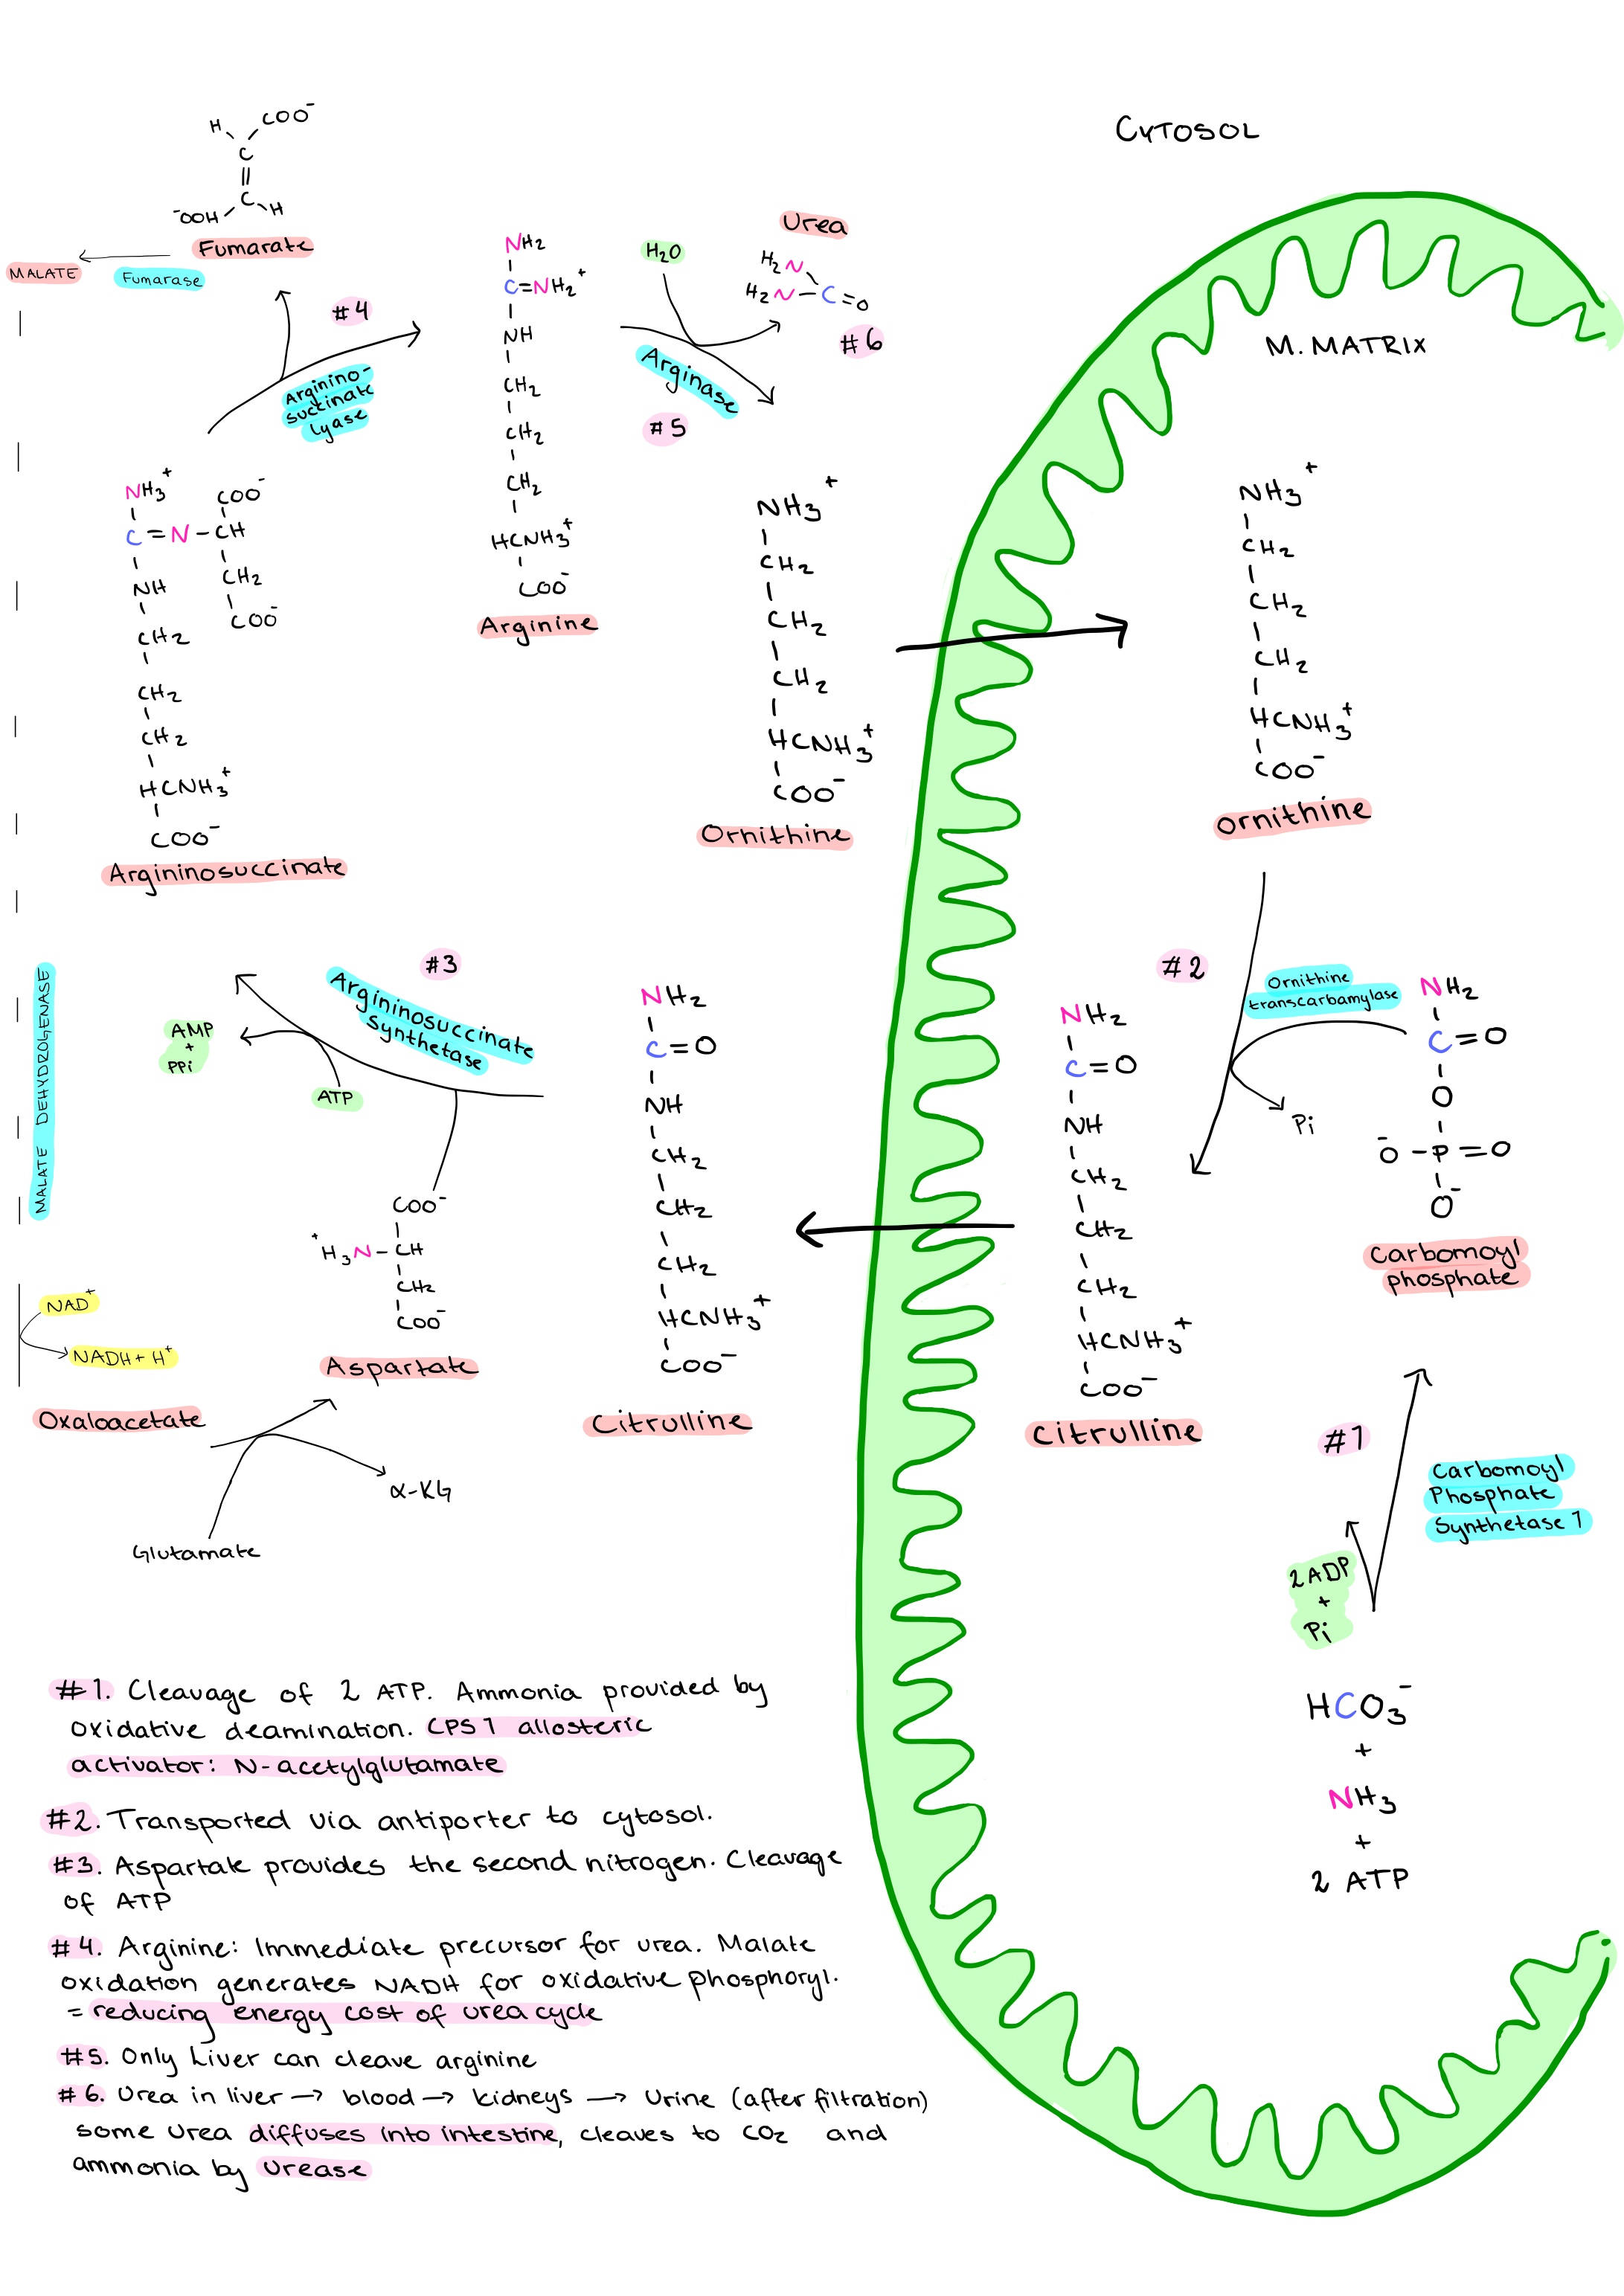 CYTOSOL
M. MATRIX
H
COO⁻
C
||
C
⁻OOH
H
Fumarate
MALATE
Fumarase
#4
Arginino-
succinate
lyase
NH₂
C=NH₂⁺
NH
CH₂
CH₂
CH₂
HCNH₃⁺
COO⁻
Arginine
H₂O
Arginase
#5
Urea
H₂N
H₂N-C=O
#6
NH₃⁺
C=N-CH
NH
CH₂
CH₂
CH₂
HCNH₃⁺
COO⁻
COO⁻
CH₂
COO⁻
Argininosuccinate
NH₃⁺
CH₂
CH₂
CH₂
HCNH₃⁺
COO⁻
Ornithine
NH₃⁺
CH₂
CH₂
CH₂
HCNH₃⁺
COO⁻
Ornithine
MALATE DEHYDROGENASE
#3
Argininosuccinate
synthetase
AMP
+
PPi
ATP
COO⁻
⁺H₃N-CH
CH₂
COO⁻
Aspartate
NAD⁺
NADH + H⁺
Oxaloacetate
α-KG
Glutamate
NH₂
C=O
NH
CH₂
CH₂
CH₂
HCNH₃⁺
COO⁻
Citrulline
NH₂
C=O
NH
CH₂
CH₂
CH₂
HCNH₃⁺
COO⁻
Citrulline
#2
Ornithine
transcarbamylase
Pi
NH₂
C=O
O
⁻O-P=O
O⁻
Carbomoyl
phosphate
#1
Carbomoyl
Phosphate
Synthetase 1
2ADP
+
Pi
HCO₃⁻
+
NH₃
+
2 ATP
#1. Cleavage of 2 ATP. Ammonia provided by
oxidative deamination. CPS1 allosteric
activator: N-acetylglutamate
#2. Transported via antiporter to cytosol.
#3. Aspartate provides the second nitrogen. Cleavage
of ATP
#4. Arginine: Immediate precursor for urea. Malate
oxidation generates NADH for oxidative phosphoryl.
= reducing energy cost of urea cycle
#5. Only Liver can cleave arginine
#6. Urea in liver → blood → kidneys → Urine (after filtration)
some urea diffuses into intestine, cleaves to CO₂ and
ammonia by urease